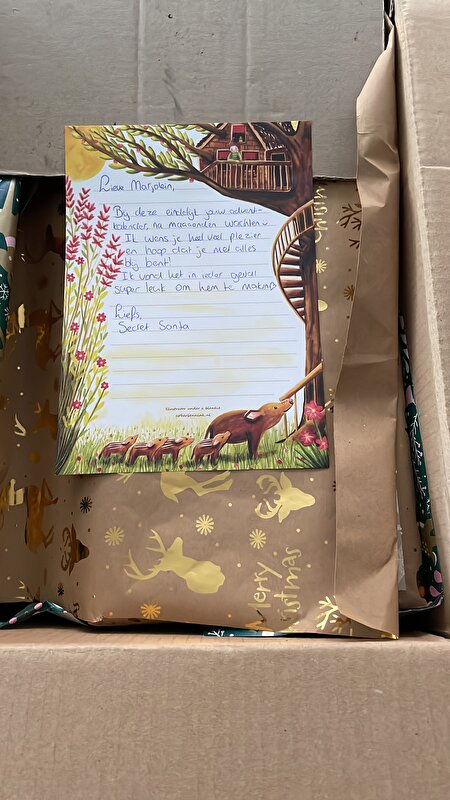 Lieve Marjolein,
Bij deze eindelijk jouw advent-
kalender, na maaaanden wachten
Ik wens je heel veel plezier
en hoop dat je met alles
blij bent!
Ik vond het in ieder geval
super leuk om hem te maken
Liefs,
Secret Santa
Merry
Christmas